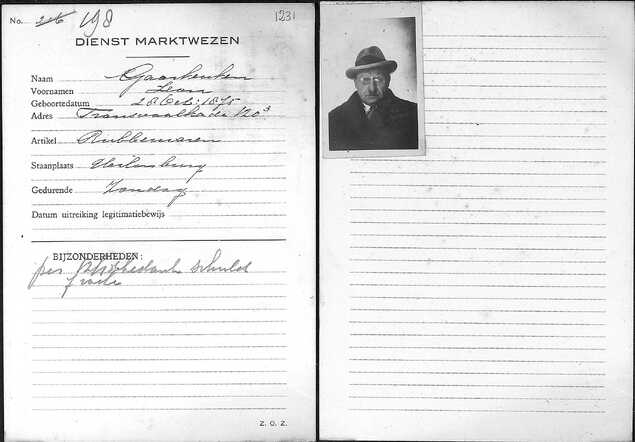 No. 206 198 1231
DIENST MARKTWEZEN
Naam Gaarkeuken
Voornamen Leon
Geboortedatum 28 Oct: 1875
Adres Transvaalkade 120³
Artikel Rubberwaren
Staanplaats
Gedurende Zondag
Datum uitreiking legitimatiebewijs
BIJZONDERHEDEN:
per schuld
Z. O. Z.